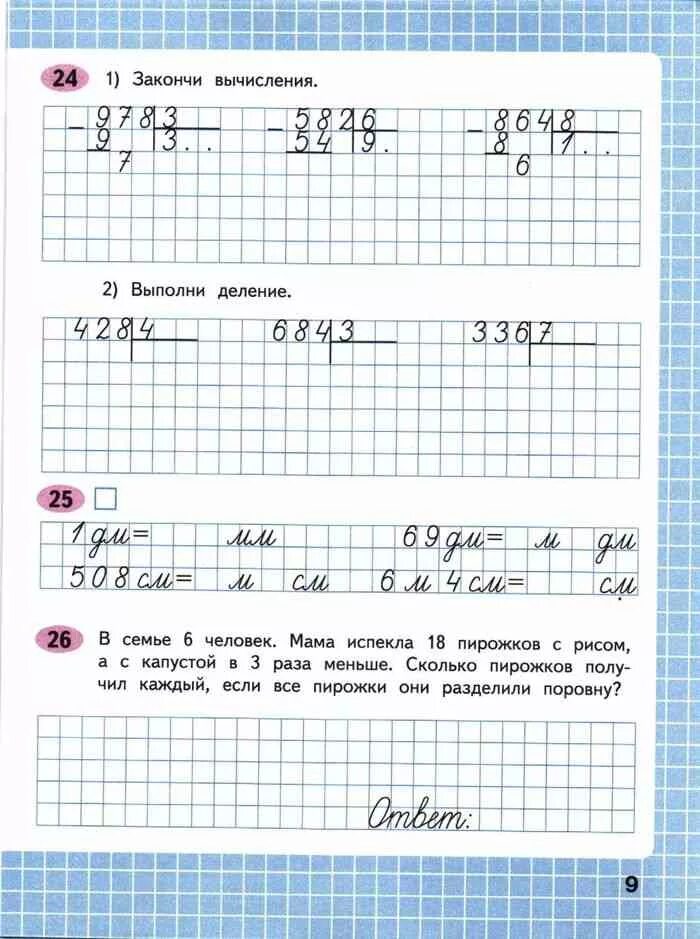 24 1) Закончи вычисления.
978 3 582 6 864 8
9 3.. 54 9. 8 1..
7 6
2) Выполни деление.
428 4 684 3 336 7
25
1 дм= мм 69 дм= м дм
508 см= м см 6 м 4 см= см
26 В семье 6 человек. Мама испекла 18 пирожков с рисом,
а с капустой в 3 раза меньше. Сколько пирожков полу-
чил каждый, если все пирожки они разделили поровну?
Ответ:
9